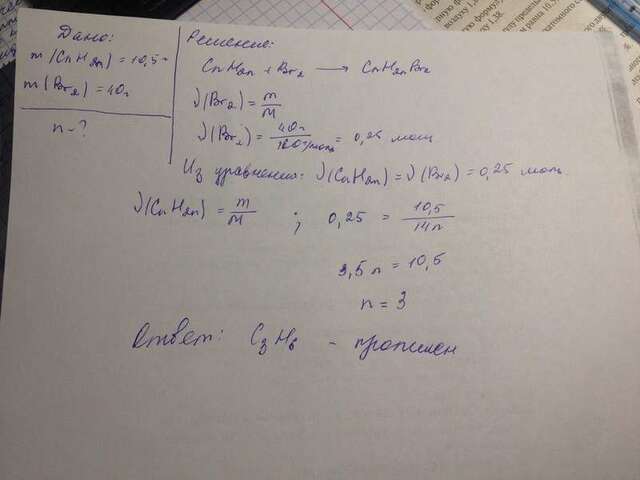 Дано:
m (CnH2n) = 10,5 г
m (Br2) = 40г
n - ?
Решение:
CnH2n + Br2 ⟶ CnH2nBr2
ν(Br2) = m/M
ν(Br2) = 40г/160г/моль = 0,25 моль
Из уравнения: ν(CnH2n) = ν(Br2) = 0,25 моль
ν(CnH2n) = m/M ; 0,25 = 10,5/14n
3,5n = 10,5
n = 3
Ответ: C3H6 - пропилен